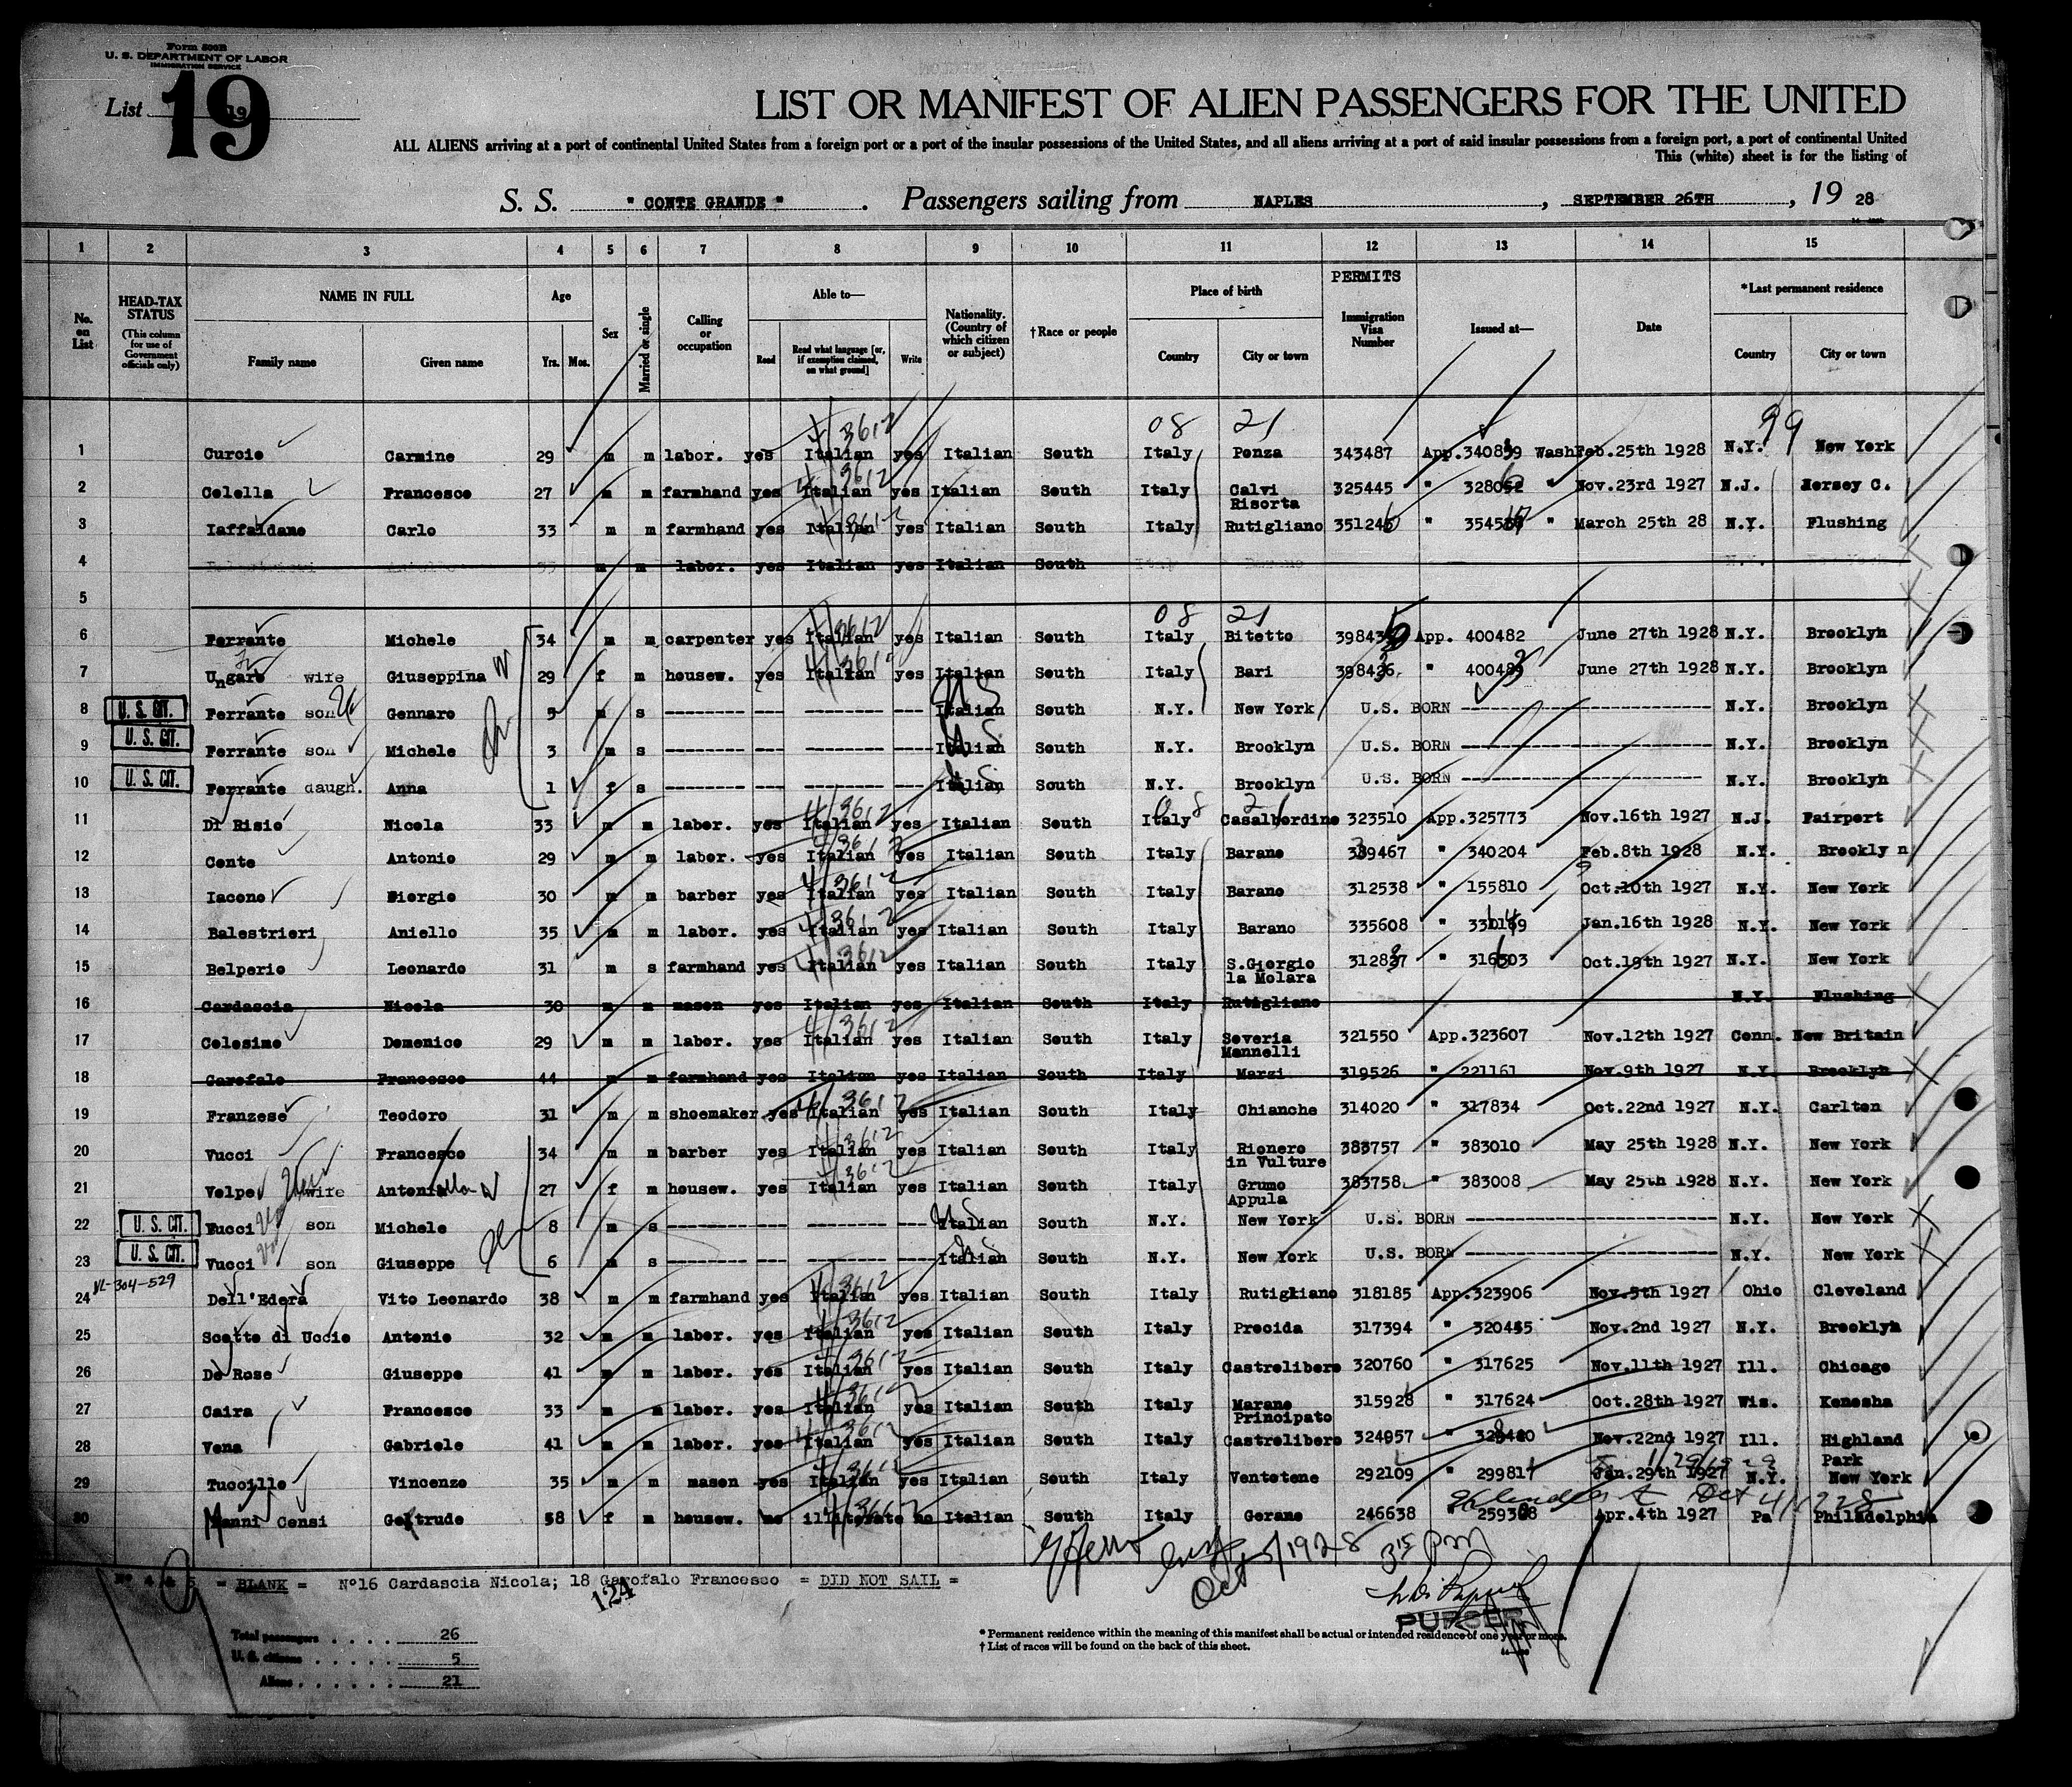 Form 500B
U. S. DEPARTMENT OF LABOR
IMMIGRATION SERVICE
List 19
19
LIST OR MANIFEST OF ALIEN PASSENGERS FOR THE UNITED
ALL ALIENS arriving at a port of continental United States from a foreign port or a port of the insular possessions of the United States, and all aliens arriving at a port of said insular possessions from a foreign port, a port of continental United
This (white) sheet is for the listing of
S. S. " CONTE GRANDE " . Passengers sailing from NAPLES , SEPTEMBER 26TH , 19 28
1 2 3 4 5 6 7 8 9 10 11 12 13 14 15
No. on List
HEAD-TAX STATUS (This column for use of Government officials only)
NAME IN FULL Family name Given name
Age Yrs. Mos.
Sex
Married or single
Calling or occupation
Able to— Read Read what language [or, if exemption claimed, on what ground] Write
Nationality. (Country of which citizen or subject)
†Race or people
Place of birth Country City or town
PERMITS
Immigration Visa Number
Issued at—
Date
*Last permanent residence Country City or town
08 21 99
1 Curcio Carmine 29 m m labor. yes Italian yes Italian South Italy Ponza 343487 App.340839 Wash Feb.25th 1928 N.Y. New York
2 Colella Francesco 27 m m farmhand yes Italian yes Italian South Italy Calvi Risorta 325445 " 328052 " Nov.23rd 1927 N.J. Jersey C.
3 Iaffaldano Carlo 33 m m farmhand yes Italian yes Italian South Italy Rutigliano 351246 " " March 25th 28 N.Y. Flushing
4 m m labor. yes Italian yes Italian South
5
08 21
6 Ferrante Michele 34 m m carpenter yes Italian yes Italian South Italy Bitetto App. 400482 June 27th 1928 N.Y. Brooklyn
7 Ungaro wife Giuseppina 29 f m housew. yes Italian yes Italian South Italy Bari 398426 " June 27th 1928 N.Y. Brooklyn
8 U. S. CIT. Ferrante son Gennaro 5 m s Italian US South N.Y. New York U.S. BORN N.Y. Brooklyn
9 U. S. CIT. Ferrante son Michele 3 m s Italian US South N.Y. Brooklyn U.S. BORN N.Y. Brooklyn
10 U. S. CIT. Ferrante daugh. Anna 1 f s Italian US South N.Y. Brooklyn U.S. BORN N.Y. Brooklyn
08 21
11 Di Risio Nicola 33 m m labor. yes Italian yes Italian South Italy Casalbordino 323510 App.325773 Nov.16th 1927 N.J. Fairport
12 Conte Antonio 29 m m labor. yes Italian yes Italian South Italy Barano 339467 " 340204 Feb.8th 1928 N.Y. Brooklyn
13 Iacono Biorgio 30 m m barber yes Italian yes Italian South Italy Barano 312538 " 155810 Oct.10th 1927 N.Y. New York
14 Balestrieri Aniello 35 m m labor. yes Italian yes Italian South Italy Barano 335608 " Jan.16th 1928 N.Y. New York
15 Belperio Leonardo 31 m s farmhand yes Italian yes Italian South Italy S.Giorgio la Molara 312837 " 316503 Oct.19th 1927 N.Y. New York
16 Cardascia Nicola 30 m m mason yes Italian yes Italian South Italy Rutigliano N.Y. Flushing
17 Colesimo Domenico 29 m m labor. yes Italian yes Italian South Italy Soveria Mannelli 321550 App.323607 Nov.12th 1927 Conn. New Britain
18 Garofalo Francesco 44 m m farmhand yes Italian yes Italian South Italy Marzi 319526 " 221161 Nov.9th 1927 N.Y. Brooklyn
19 Franzese Teodoro 31 m m shoemaker yes Italian yes Italian South Italy Chianche 314020 " 317834 Oct.22nd 1927 N.Y. Carlton
20 Vucci Francesco 34 m m barber yes Italian yes Italian South Italy Rionero in Vulture 383757 " 383010 May 25th 1928 N.Y. New York
21 Volpe wife Antonia 27 f m housew. yes Italian yes Italian South Italy Grumo Appula 383758 " 383008 May 25th 1928 N.Y. New York
22 U. S. CIT. Vucci son Michele 8 m s Italian US South N.Y. New York U.S. BORN N.Y. New York
23 U. S. CIT. Vucci son Giuseppe 6 m s Italian US South N.Y. New York U.S. BORN N.Y. New York
VL-304-529
24 Dell'Edera Vito Leonardo 38 m m farmhand yes Italian yes Italian South Italy Rutigliano 318185 App.323906 Nov.5th 1927 Ohio Cleveland
25 Scotto di Uccio Antonio 32 m m labor. yes Italian yes Italian South Italy Procida 317394 " 320455 Nov.2nd 1927 N.Y. Brooklyn
26 De Rose Giuseppe 41 m m labor. yes Italian yes Italian South Italy Castrolibero 320760 " 317625 Nov.11th 1927 Ill. Chicago
27 Caira Francesco 33 m m labor. yes Italian yes Italian South Italy Marano Principato 315928 " 317624 Oct.28th 1927 Wis. Kenosha
28 Vena Gabriele 41 m m labor. yes Italian yes Italian South Italy Castrolibero 324957 " Nov.22nd 1927 Ill. Highland Park
29 Tuccillo Vincenzo 35 m m mason yes Italian yes Italian South Italy Ventotene 292109 " 299817 Jan.29th 1927 N.Y. New York
30 Manni Censi Gertrude 58 f m housew. no illiterate no Italian South Italy Gerano 246638 " 259308 Apr.4th 1927 Pa Philadelphia
Oct 1928 3 15 PM
N° 4 & 5 = BLANK = N°16 Cardascia Nicola; 18 Garofalo Francesco = DID NOT SAIL =
124
PURSER
Total passengers . . . . 26
U. S. citizens . . . . . 5
Aliens . . . . . . 21
* Permanent residence within the meaning of this manifest shall be actual or intended residence of one year or more.
† List of races will be found on the back of this sheet.